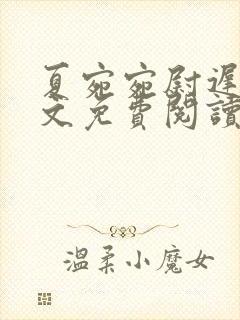 夏宛宛尉遲
文免費閱讀
溫柔小魔女